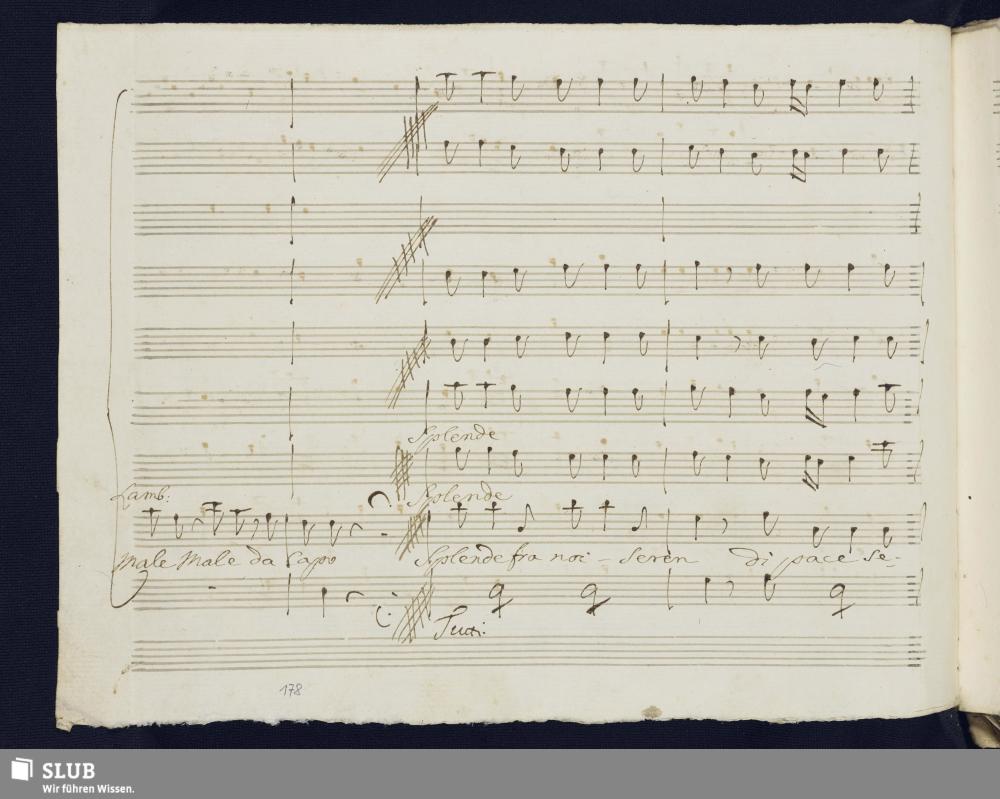 Splende
Lamb:
Splende
Male Male da Capo
Splende fra noi - seren di pace se-
Tutti.
178
SLUB
Wir führen Wissen.